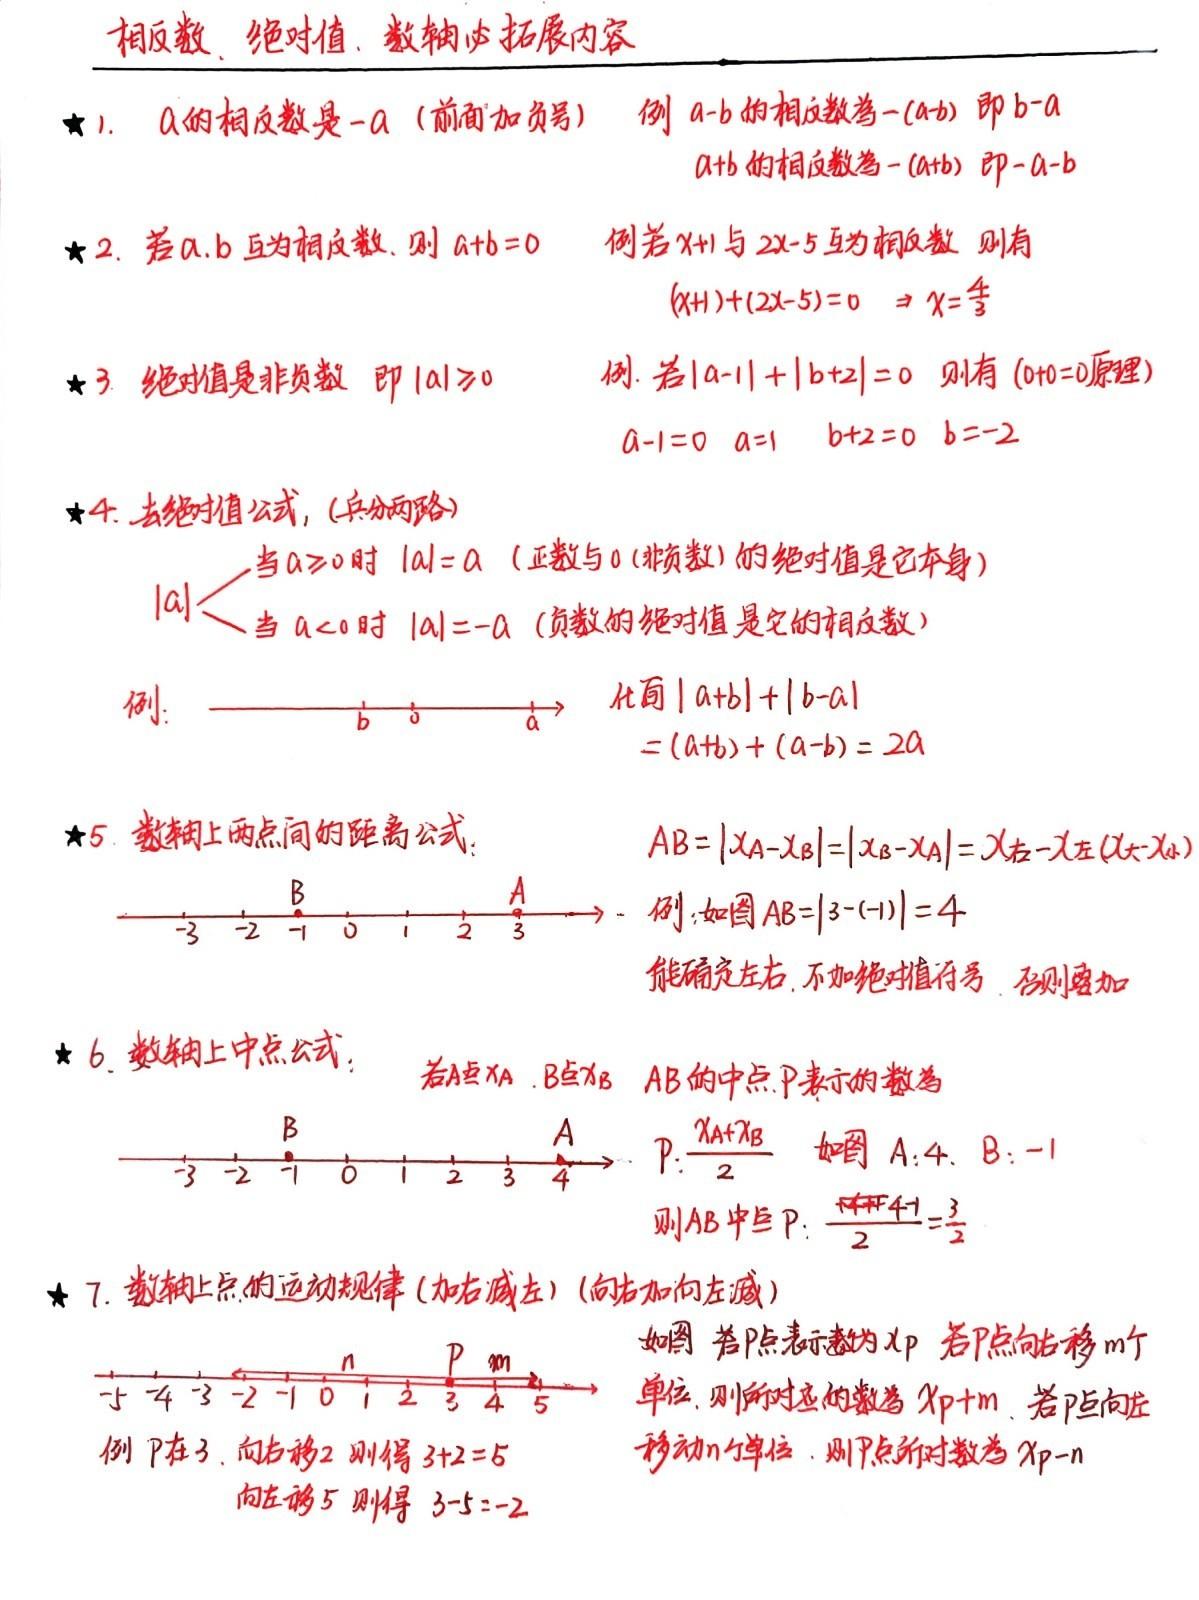 相反数、绝对值、数轴必拓展内容
★1. a的相反数是-a (前面加负号) 例 a-b的相反数为-(a-b) 即b-a
a+b的相反数为-(a+b) 即-a-b
★2. 若a.b互为相反数、则 a+b=0 例若x+1与2x-5互为相反数 则有
(x+1)+(2x-5)=0 ⇒ x=4/3
★3. 绝对值是非负数 即|a|≥0 例. 若|a-1|+|b+2|=0 则有 (0+0=0原理)
a-1=0 a=1 b+2=0 b=-2
★4. 去绝对值公式, (兵分两路)
当a≥0时 |a|=a (正数与0(非负数)的绝对值是它本身)
|a|
当 a<0时 |a|=-a (负数的绝对值是它的相反数)
例: b 0 a 化简|a+b|+|b-a|
=(a+b)+(a-b)=2a
★5. 数轴上两点间的距离公式: AB=|xA-xB|=|xB-xA|=x右-x左(x大-x小)
B A
-3 -2 -1 0 1 2 3 例:如图AB=|3-(-1)|=4
能确定左右、不加绝对值符号、否则要加
★6. 数轴上中点公式:
若A点xA、B点xB AB的中点P表示的数为
B A
-3 -2 -1 0 1 2 3 4 P: xA+xB/2 如图 A:4、B:-1
则AB中点P: 4-1/2=3/2
★7. 数轴上点的运动规律(加右减左)(向右加向左减)
n P m 如图 若P点表示数为xp 若P点向右移m个
-5 -4 -3 -2 -1 0 1 2 3 4 5 单位、则所对应的数为 xp+m、若P点向左
例 P在3、向右移2 则得 3+2=5 移动n个单位、则P点所对数为 xp-n
向左移5 则得 3-5=-2